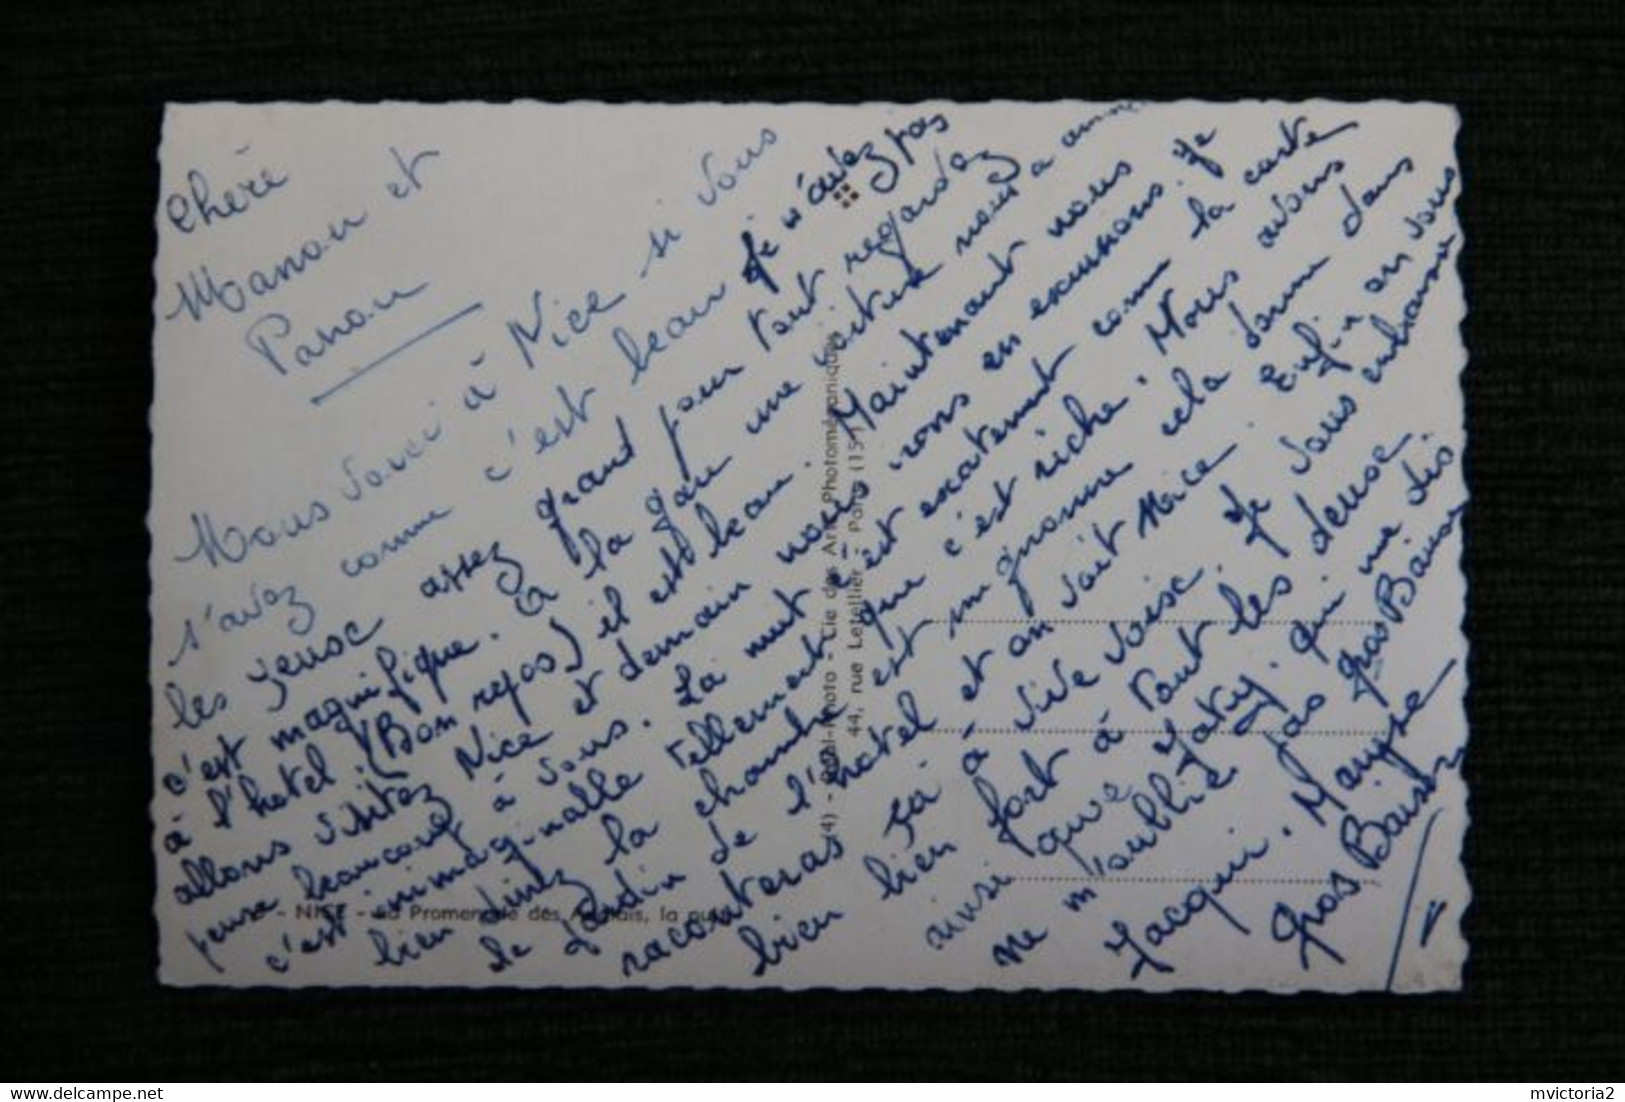 Chère
Manou et
Panou
Nous voici à Nice si vous
s'avez comme c'est beau je n'avez pas
les yeuse assez grand pour tout regardez
c'est magnifique. a la gare une voiture nous a
à l'hotel (Bon repos) il est beau. Maintenant nous
allons visitez Nice et demain nous irons en excursions. Je
pense beaucoup à vous. La nuit c'est exatement com la carte
c'est inimaginalle tellement que c'est riche. Nous avons
bien dinez la chambre est mignonne cela donne dans
le Jardin de l'hotel et on voit Nice. Enfin on vous
raconteras à vive voise. Je vous embrasse
bien bien fort à tout les deuse
ainsi que Katy. qui me dis
ne m'oublie pas Gros Baison
Jacqui. Maryse
Gros Baison
- NICE - La Promenade des Anglais, la nuit
(4) - Réal-Photo - Cie des Arts Photomécaniques
44, rue Letellier - Paris (15
mvictoria2